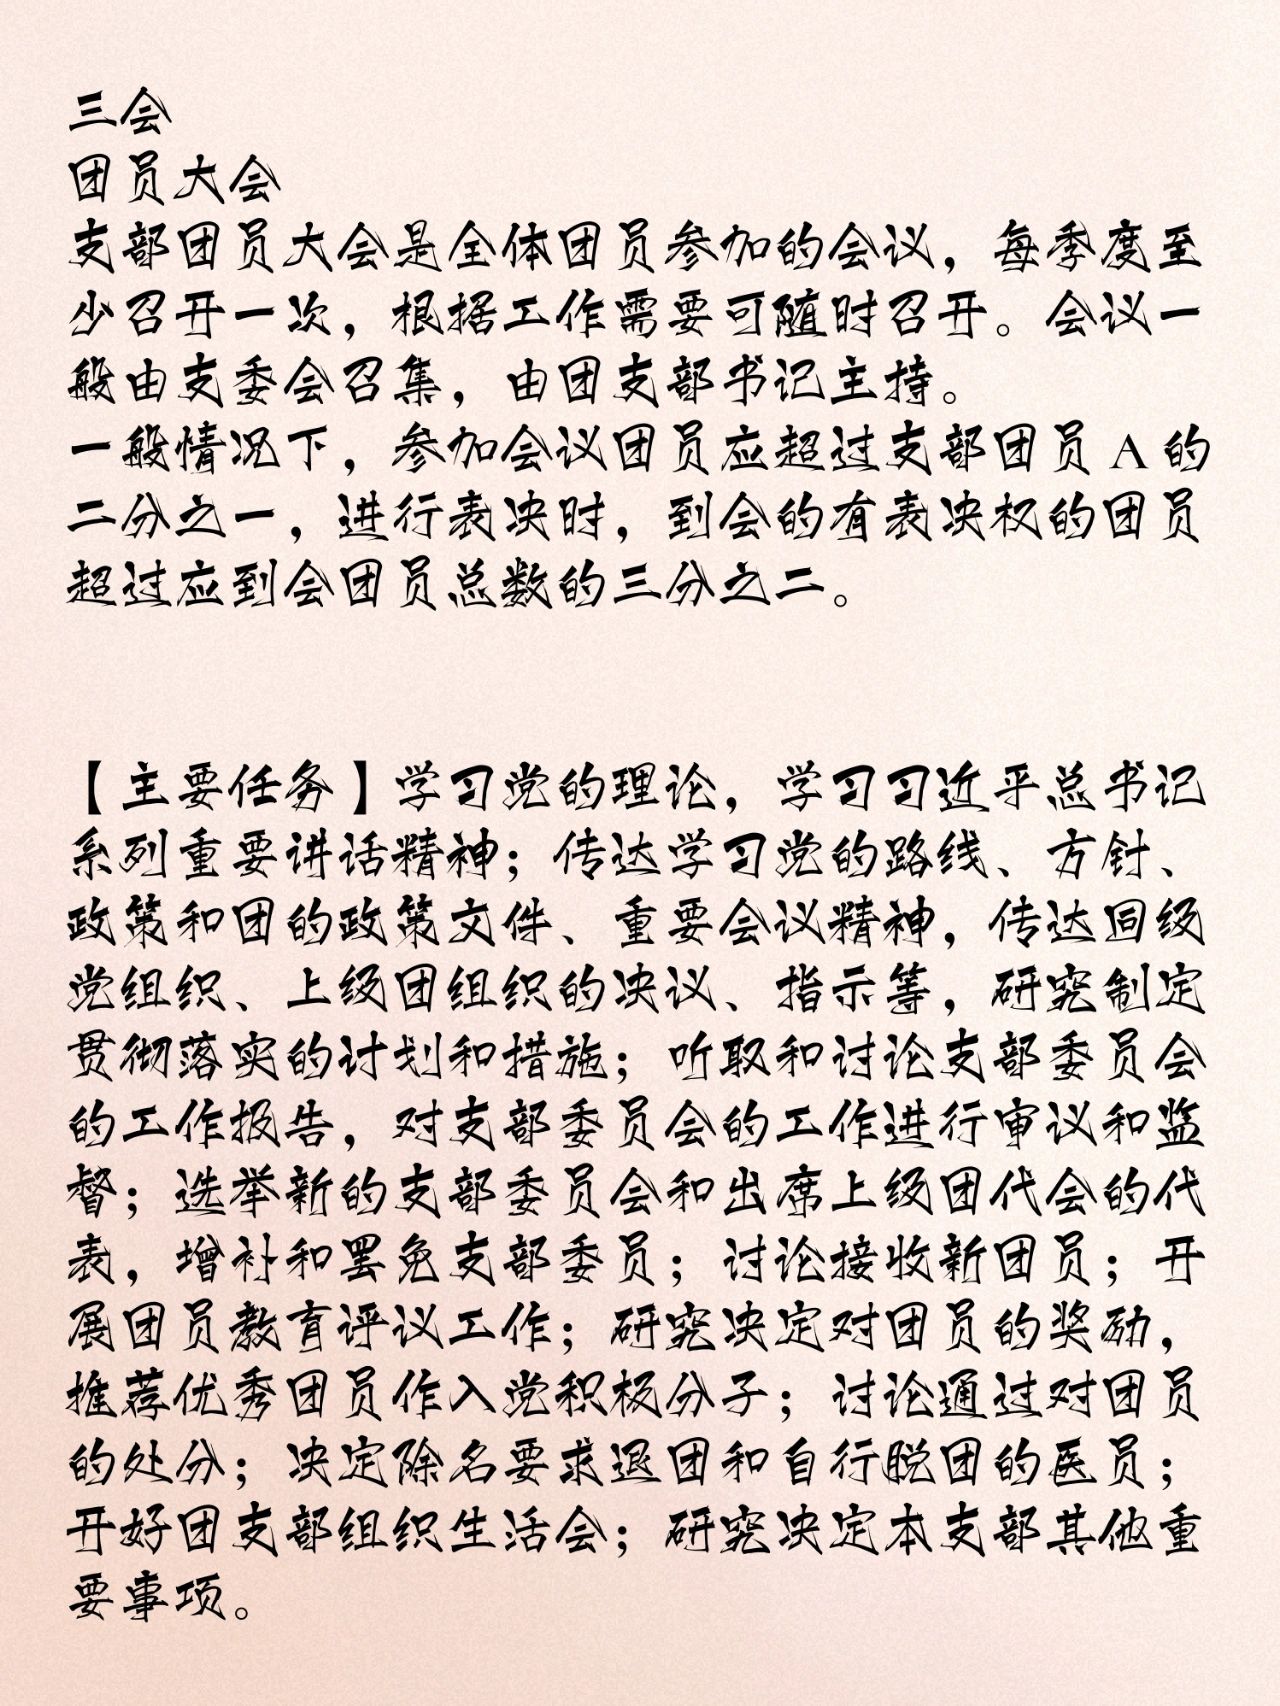 三会
团员大会
支部团员大会是全体团员参加的会议，每季度至
少召开一次，根据工作需要可随时召开。会议一
般由支委会召集，由团支部书记主持。
一般情况下，参加会议团员应超过支部团员 A 的
二分之一，进行表决时，到会的有表决权的团员
超过应到会团员总数的三分之二。
【主要任务】学习党的理论，学习习近平总书记
系列重要讲话精神；传达学习党的路线、方针、
政策和团的政策文件、重要会议精神，传达回级
党组织、上级团组织的决议、指示等，研究制定
贯彻落实的计划和措施；听取和讨论支部委员会
的工作报告，对支部委员会的工作进行审议和监
督；选举新的支部委员会和出席上级团代会的代
表，增补和罢免支部委员；讨论接收新团员；开
展团员教育评议工作；研究决定对团员的奖励，
推荐优秀团员作入党积极分子；讨论通过对团员
的处分；决定除名要求退团和自行脱团的医员；
开好团支部组织生活会；研究决定本支部其他重
要事项。